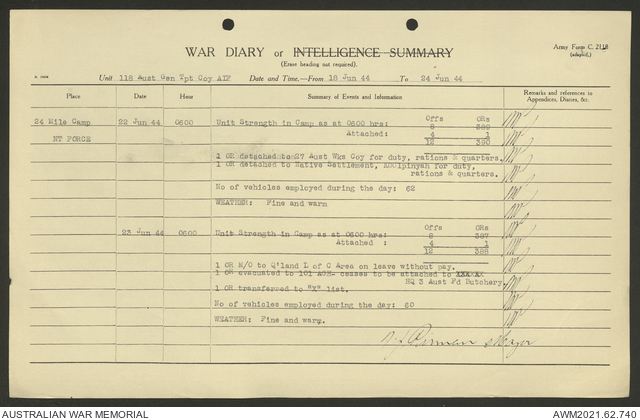 Army Form C. 2118
(adapted.)
WAR DIARY or INTELLIGENCE SUMMARY
(Erase heading not required).
Unit 118 Aust Gen Tpt Coy AIF Date and Time.—From 18 Jun 44 To 24 Jun 44
Place Date Hour Summary of Events and Information Remarks and references to Appendices, Diaries, &c.
24 Mile Camp 22 Jun 44 0600 Unit Strength in Camp as at 0600 hrs: Offs ORs
8 389
Attached: 4 1
NT FORCE 12 390
1 OR detached to 27 Aust Wks Coy for duty, rations & quarters.
1 OR detached to Native Settlement, Koolpinyah for duty,
rations & quarters.
No of vehicles employed during the day: 62
WEATHER: Fine and warm
23 Jun 44 0600 Unit Strength in Camp as at 0600 hrs: Offs ORs
8 387
Attached : 4 1
12 388
1 OR M/O to Q'land L of C Area on leave without pay.
1 OR evacuated to 101 AGH- ceases to be attached to
HQ 3 Aust Fd Butchery.
1 OR transferred to "X" list.
No of vehicles employed during the day: 60
WEATHER: Fine and warm.
Major
AUSTRALIAN WAR MEMORIAL AWM2021.62.740